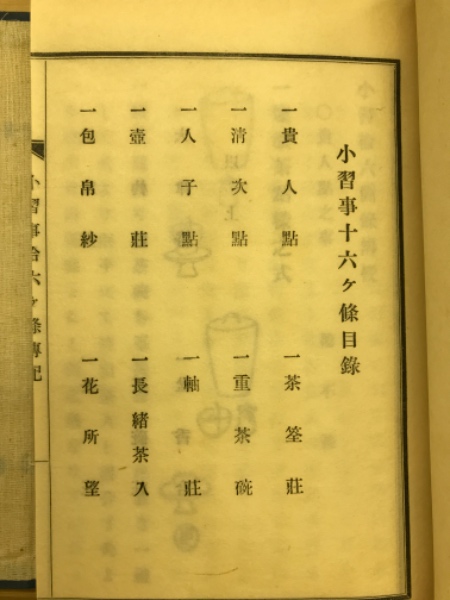 小習事十六ヶ條目錄
一貴人點
一茶筌莊
一清次點
一重茶碗
一人子點
一軸莊
一壺莊
一長緒茶入
一包帛紗
一花所望
小習事拾六ヶ條傳記